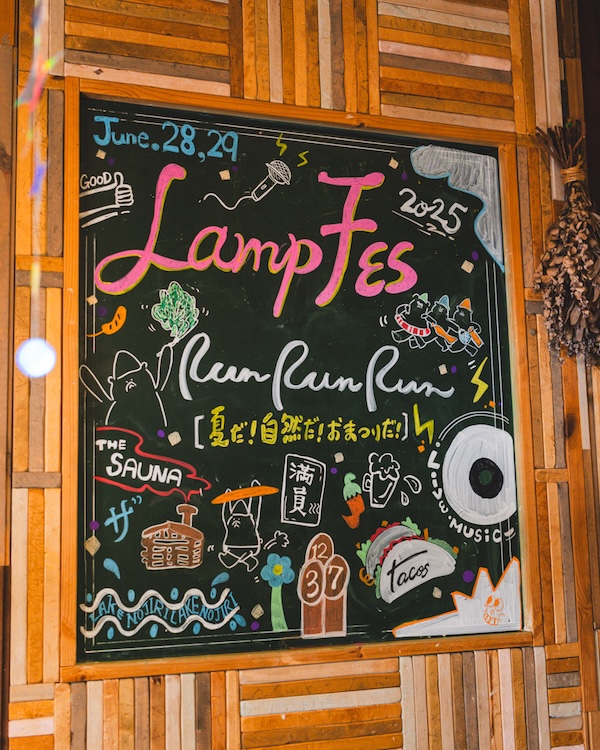 June.28,29
GOOD
Lamp Fes
2025
Run Run Run
[夏だ!自然だ!おまつりだ!]
THE
SAUNA
ザ
満員
LOVE MUSIC
Tacos
12
37
LAKE NOJIRI LAKE NOJIRI